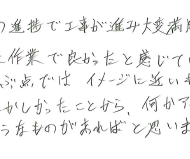 の進捗で工事が進み大変満足
作業で良かったと感じてい
ぶ点では イメージに近いも
かしかったことから、何かア
うなものがあればと思いま